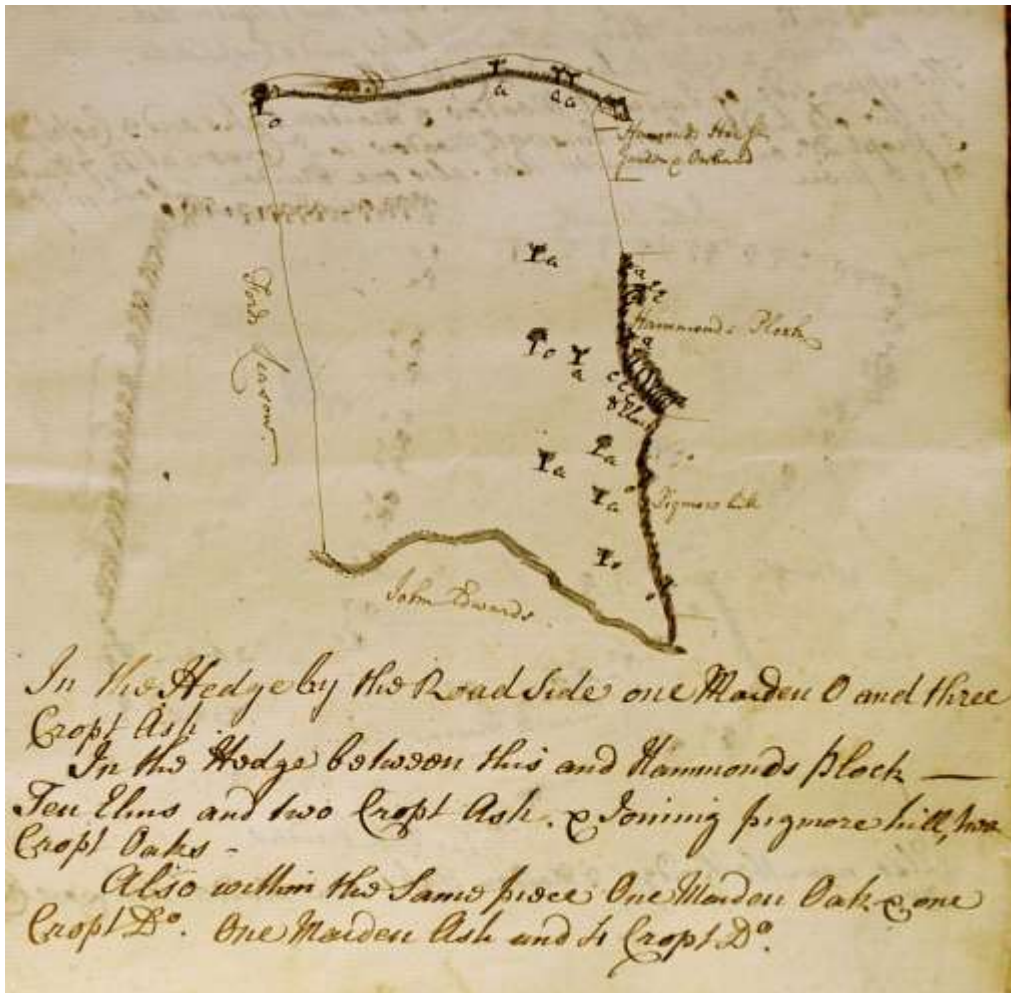 o
a
a a
Hammonds House
Garden & Orchard
a
a
e e
Fords Leasow.
Hammonds Plock
o
a
a
e e
8 El
a
a
a
o
Pigmore hill
o
John Edwards.
In the Hedge by the Road Side one Maiden O and three
Cropt Ash.
In the Hedge between this and Hammonds plock —
Ten Elms and two Cropt Ash. & Joining pigmore hill, two
Cropt Oaks -
Also within the Same piece One Maiden Oak & one
Cropt Do. One Maiden Ash and 4 Cropt Do.